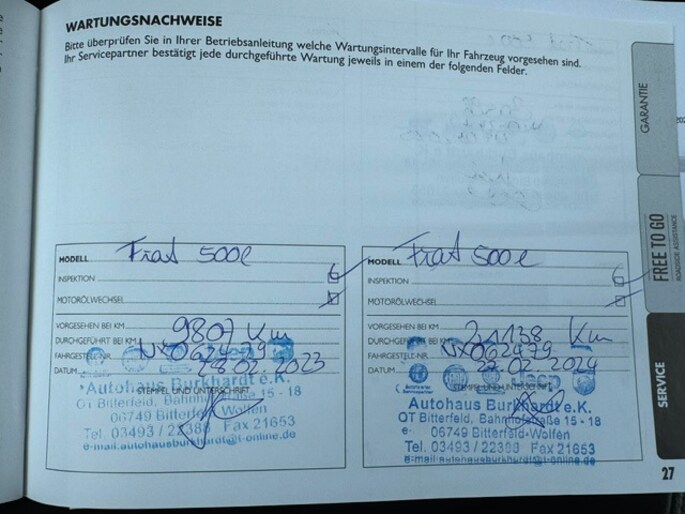 WARTUNGSNACHWEISE
Bitte überprüfen Sie in Ihrer Betriebsanleitung welche Wartungsintervalle für Ihr Fahrzeug vorgesehen sind.
Ihr Servicepartner bestätigt jede durchgeführte Wartung jeweils in einem der folgenden Felder.
GARANTIE
FREE TO GO
ROADSIDE ASSISTANCE
SERVICE
MODELL Fiat 500e
INSPEKTION
MOTORÖLWECHSEL
VORGESEHEN BEI KM
DURCHGEFÜHRT BEI KM 9807 Km
FAHRGESTELL-NR. NX062479
DATUM 28.02.2023
STEMPEL UND UNTERSCHRIFT
Autohaus Burkhardt e.K.
OT Bitterfeld, Bahnhofstraße 15 - 18
06749 Bitterfeld-Wolfen
Tel. 03493 / 22388 Fax 21653
e-mail:autohausburkhardt@t-online.de
MODELL Fiat 500e
INSPEKTION
MOTORÖLWECHSEL
VORGESEHEN BEI KM
DURCHGEFÜHRT BEI KM 21138 Km
FAHRGESTELL-NR. NX062479
DATUM 27.02.2024
STEMPEL UND UNTERSCHRIFT
Autohaus Burkhardt e.K.
OT Bitterfeld, Bahnhofstraße 15 - 18
06749 Bitterfeld-Wolfen
Tel. 03493 / 22388 Fax 21653
e-mail:autohausburkhardt@t-online.de
27